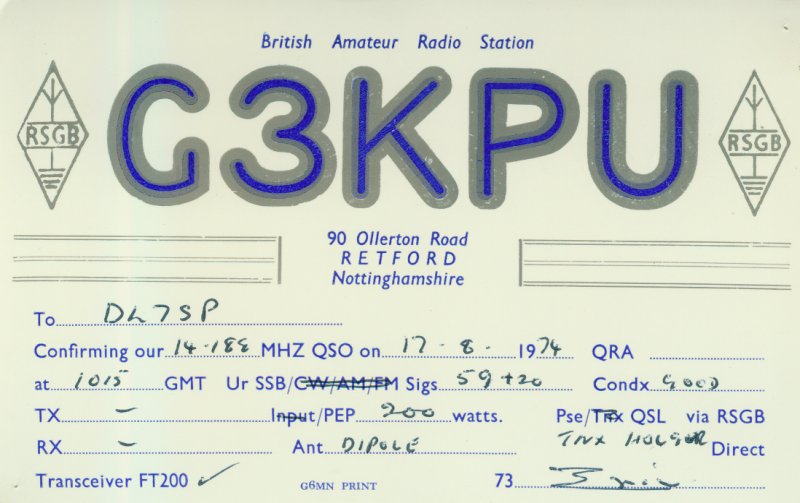 British Amateur Radio Station
RSGB G3KPU RSGB
90 Ollerton Road
RETFORD
Nottinghamshire
To DL7SP
Confirming our 14.188 MHZ QSO on 17 - 8 - 1974 QRA
at 1015 GMT Ur SSB/CW/AM/FM Sigs 59+20 Condx GOOD
TX – Input/PEP 200 watts. Pse/Tnx QSL via RSGB
RX – Ant DIPOLE TNX HOLGER Direct
Transceiver FT200 ✓ G6MN PRINT 73